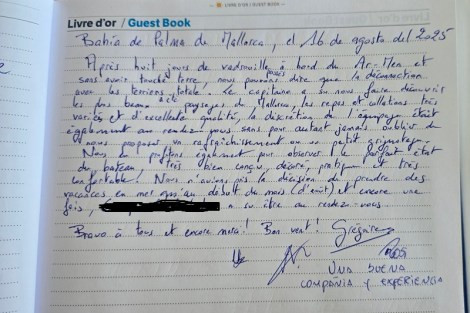 LIVRE D'OR / GUEST BOOK
Livre d'or / Guest Book
Bahía de Palma de Mallorca, el 16 de agosto del 2025
Après huit jours de vadrouille à bord du Ar-Men et
sans avoir touché terre, nous pouvons dire que la déconnection
avec les terriens totale. Le capitaine a su nous faire découvrir
les plus beaux paysages de Mallorca, les repas et collations très
variés et d'excellente qualités, la discrétion de l'équipage était
également au rendez-vous sans pour autant jamais oublier de
nous proposer un rafraîchissement ou un petit grignotage.
Nous en profitons également pour observer le parfait état
du bateau, très bien conçu, décoré, pratique et très
confortable! Nous n'avions pris la décision de prendre des
vacances en mer qu'au début du mois (d'août) et encore une
fois, a su être au rendez-vous.
Bravo à tous et encore merci! Bon vent! Grégoire
UNA BUENA
COMPANIA y EXPERIENCIA